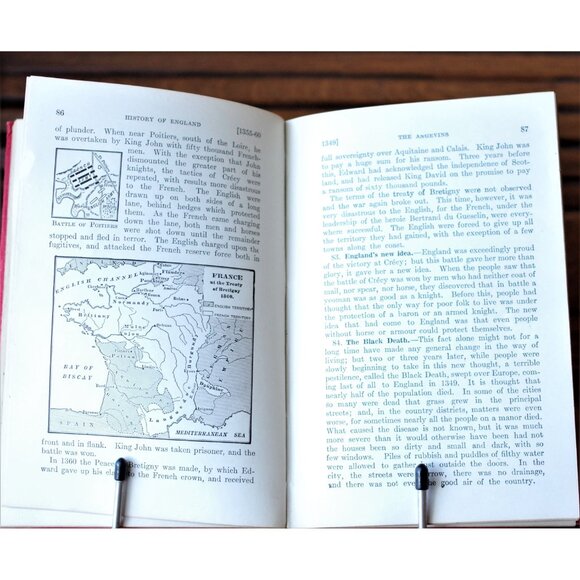 86
HISTORY OF ENGLAND
[1355-60
of plunder. When near Poitiers, south of the Loire, he
was overtaken by King John with fifty thousand French-
men. With the exception that John
dismounted the greater part of his
knights, the tactics of Crécy were
repeated, with results more disastrous
to the French. The English, were
drawn up on both sides of a long
lane, behind hedges which protected
them. As the French came charging
down the lane, both men and horses
were shot down until the remainder
BATTLE OF POITIERS
stopped and fled in terror. The English charged upon the
fugitives, and attacked the French reserve force both in
FRANCE
at the Treaty
of Bretigny
1360.
ENGLISH TERRITORY
FRENCH TERRITORY
ENGLISH CHANNEL
Flanders
Normandy
Brittany
Paris
Poitou
BAY OF
BISCAY
SPAIN
MEDITERRANEAN SEA
front and in flank. King John was taken prisoner, and the
battle was won.
In 1360 the Peace of Bretigny was made, by which Ed-
ward gave up his to the French crown, and received
[1349]
THE ANGEVINS
87
full sovereignty over Aquitaine and Calais. King John was
to pay a huge sum for his ransom. Three years before
this, Edward had acknowledged the independence of Scot-
land, and had released King David on the promise to pay
a ransom of sixty thousand pounds.
The terms of the treaty of Bretigny were not observed
and the war again broke out. This time, however, it was
very disastrous to the English, for the French, under the
leadership of the heroic Bertrand du Guesclin, were every-
where successful. The English were forced to give up all
the territory they had gained, with the exception of a few
towns along the coast.
83. England's new idea.—England was exceedingly proud
of the victory at Crécy; but this battle gave her more than
glory, it gave her a new idea. When the people saw that
the battle of Crécy was won by men who had neither coat of
mail, nor spear, nor horse, they discovered that in battle a
yeoman was as good as a knight. Before this, people had
thought that the only way for poor folk to live was under
the protection of a baron or an armed knight. The new
idea that had come to England was that even people
without horse or armour could protect themselves.
84. The Black Death.—This fact alone might not for a
long time have made any general change in the way of
living; but two or three years later, while people were
slowly beginning to take in this new thought, a terrible
pestilence, called the Black Death, swept over Europe, com-
ing last of all to England in 1349. It is thought that
nearly half of the population died. In some of the cities
so many were dead that grass grew in the principal
streets; and, in the country districts, matters were even
worse, for sometimes nearly all the people on a manor died.
What caused the disease is not known, but it was much
more severe than it would otherwise have been had not
the houses been so dirty and small and dark, with so
few windows. Piles of rubbish and puddles of filthy water
were allowed to gather just outside the doors. In the
city, the streets were narrow, there was no drainage,
and there was not even the good air of the country.